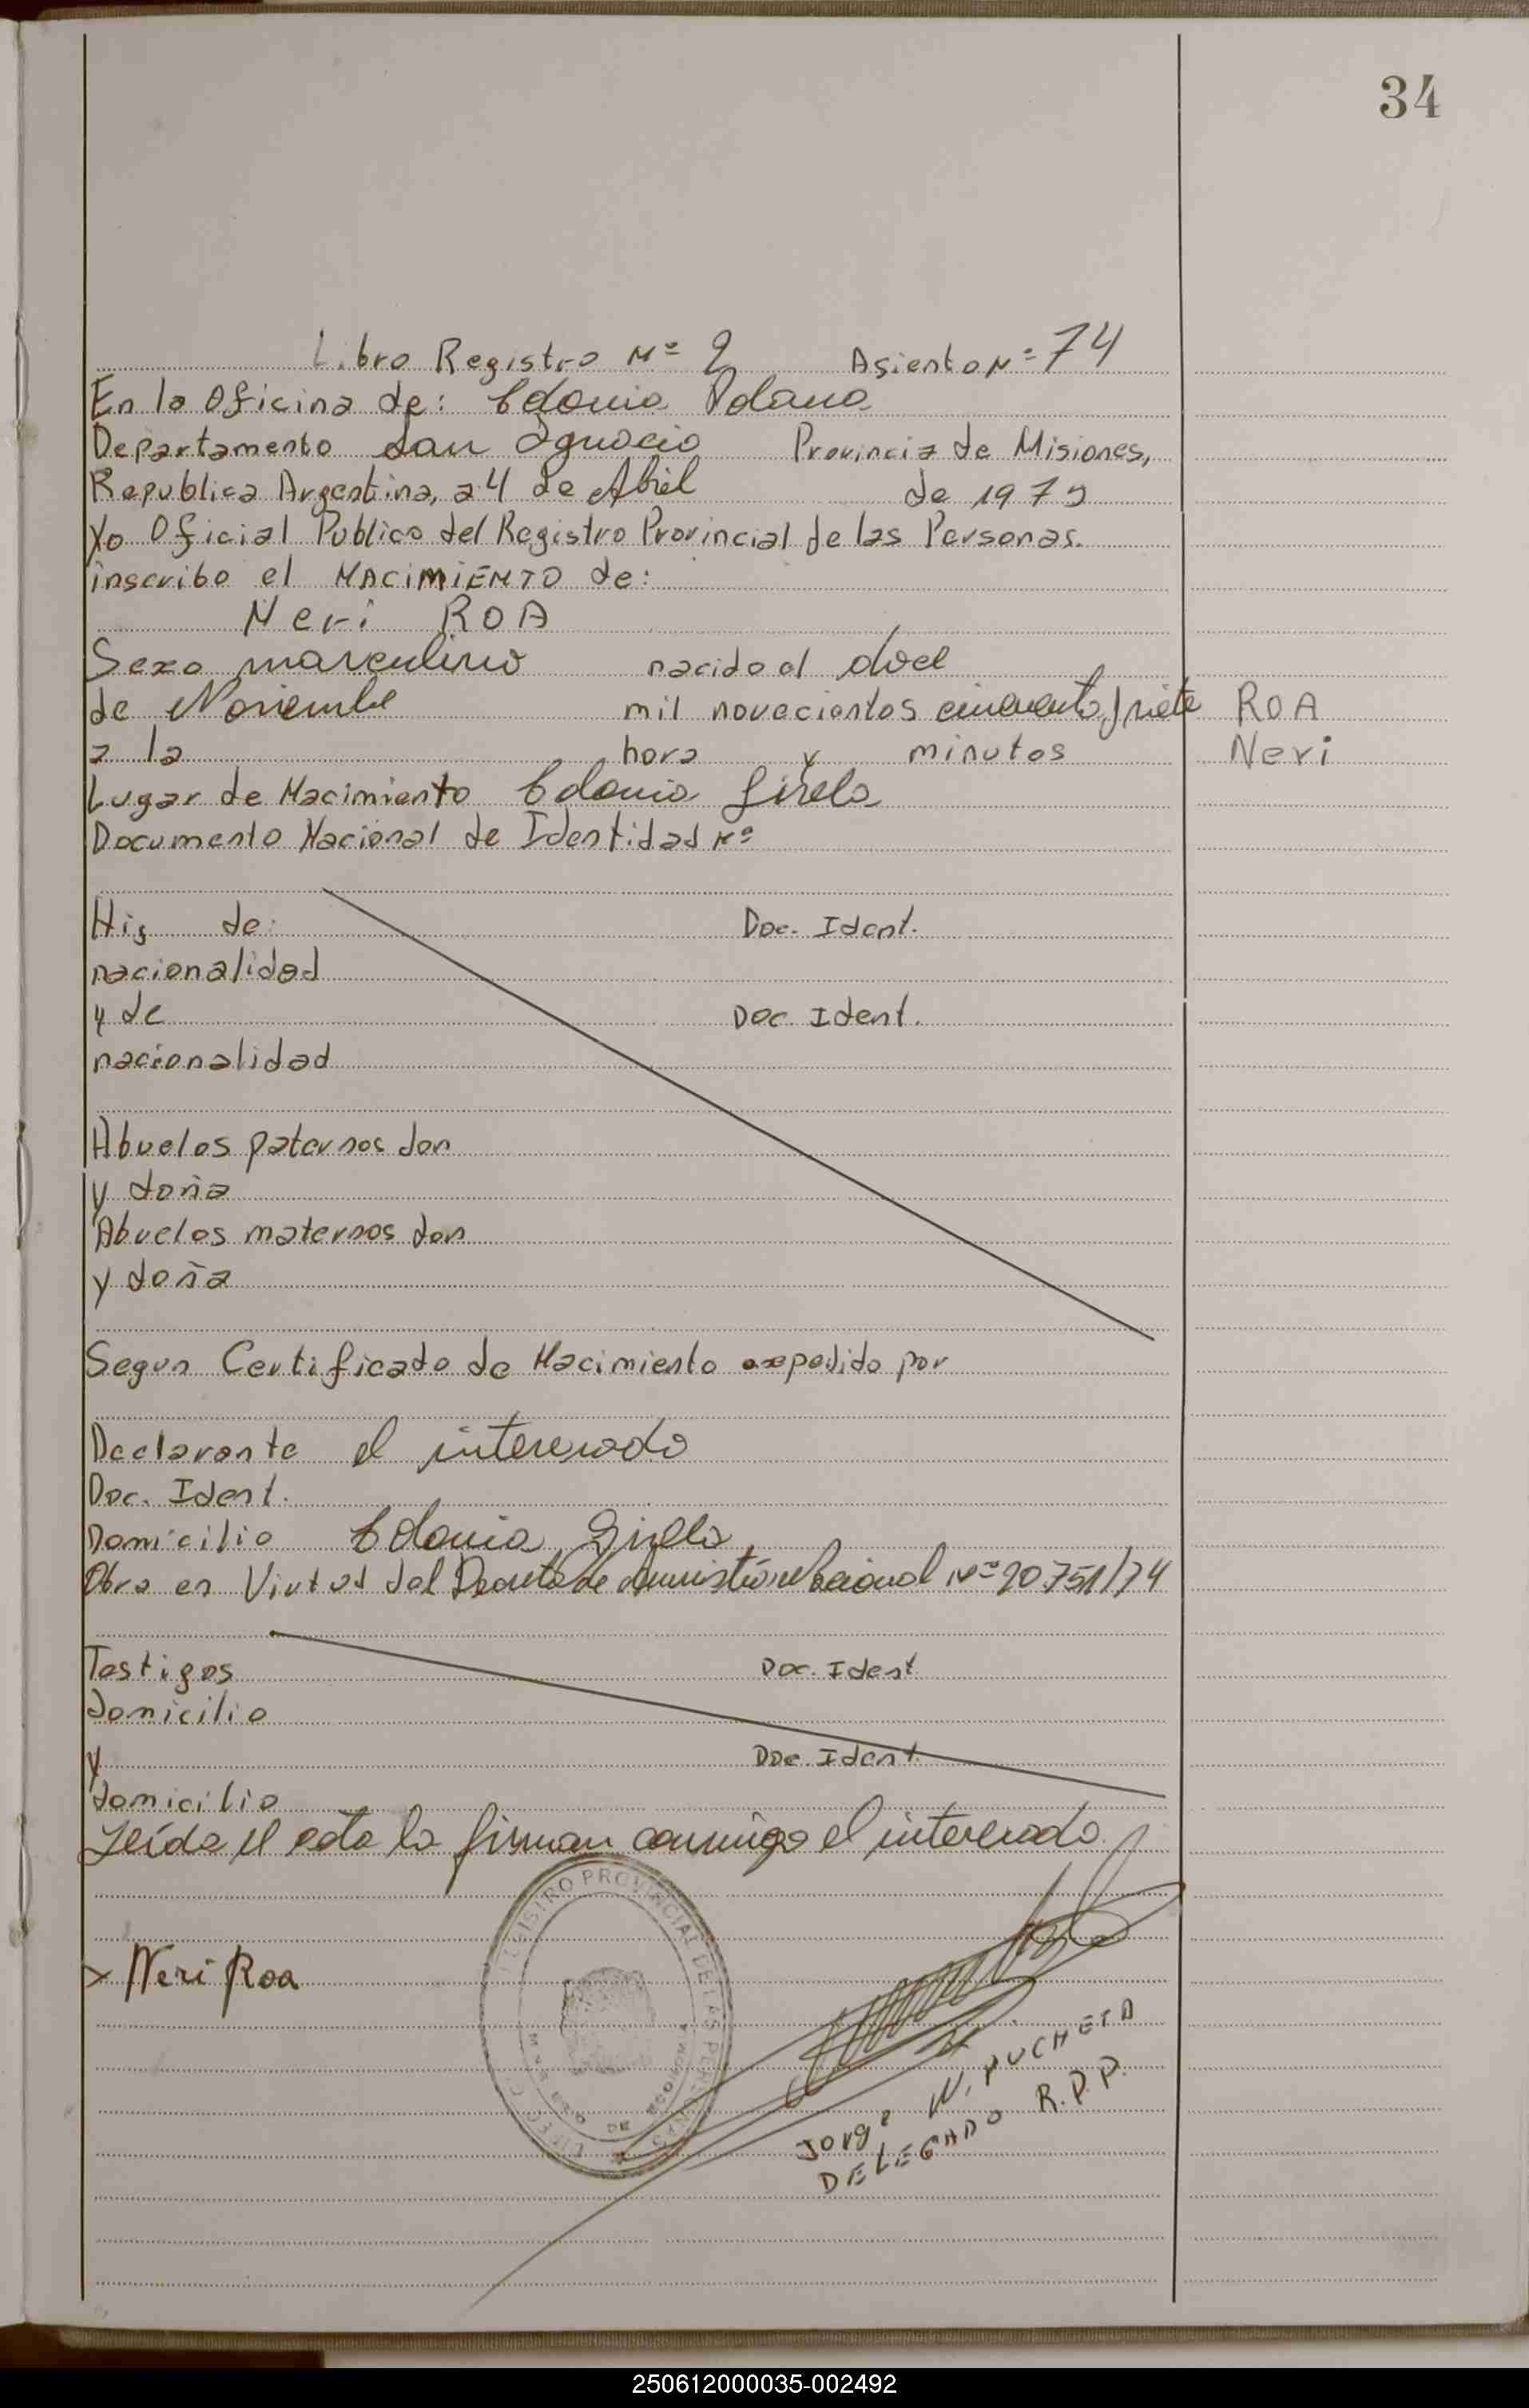 34
Libro Registro Nº 2 Asiento Nº 74
En la Oficina de: Colonia Polana
Departamento San Ignacio Provincia de Misiones,
Republica Argentina, a 4 de Abril de 1975
Yo Oficial Publico del Registro Provincial de las Personas.
inscribo el NACIMIENTO de:
Neri ROA
Sexo masculino nacido el doce
de Noviembre mil novecientos cincuenta y siete ROA
a la hora y minutos Neri
Lugar de Nacimiento Colonia Gisela
Documento Nacional de Identidad Nº
Hij de: Doc. Ident.
nacionalidad
y de Doc. Ident.
nacionalidad
Abuelos paternos don
y doña
Abuelos maternos don
y doña
Segun Certificado de Nacimiento expedido por
Declarante el interesado
Doc. Ident.
Domicilio Colonia Gisela
Obra en Virtud del Decreto de Amnistía Nacional Nº 20.751/74
Testigos Doc. Ident
domicilio
y Doc. Ident.
domicilio
Leída el acta la firman conmigo el interesado.
REGISTRO PROVINCIAL DE LAS PERSONAS
x Neri Roa
Jorge W. PUCHETA
DELEGADO R.P.P.
250612000035-002492